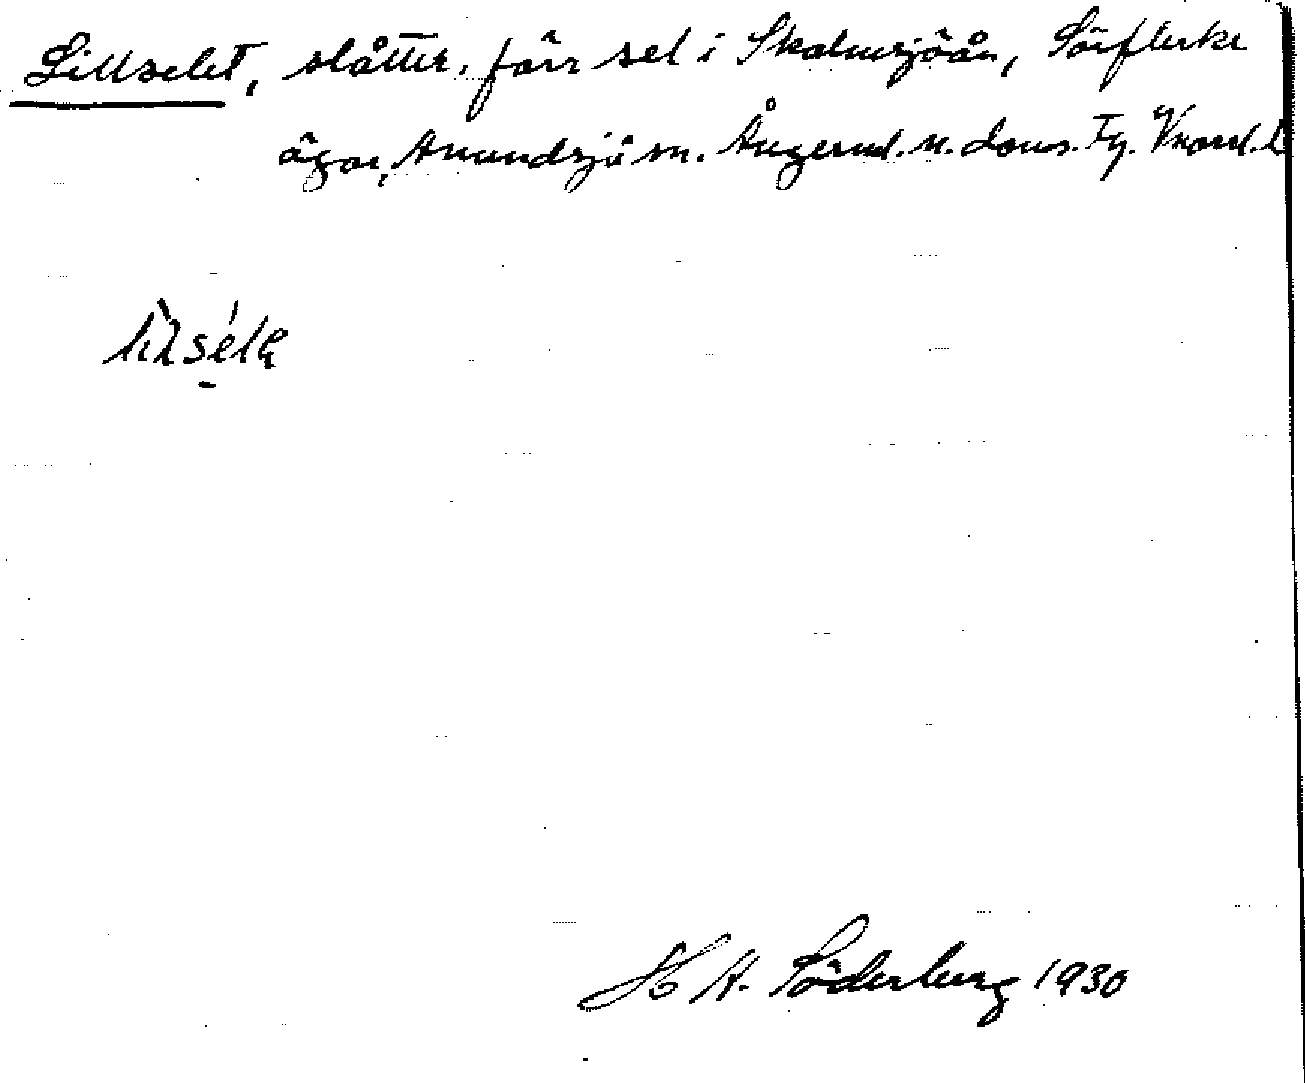 Lillselet, slåtter, förr sel i Skalmsjöån, Sörflärke
ägor, Anundsjö sn. Ångerml. n. doms. Fg. Vnorrl. l
H A. Söderberg 1930